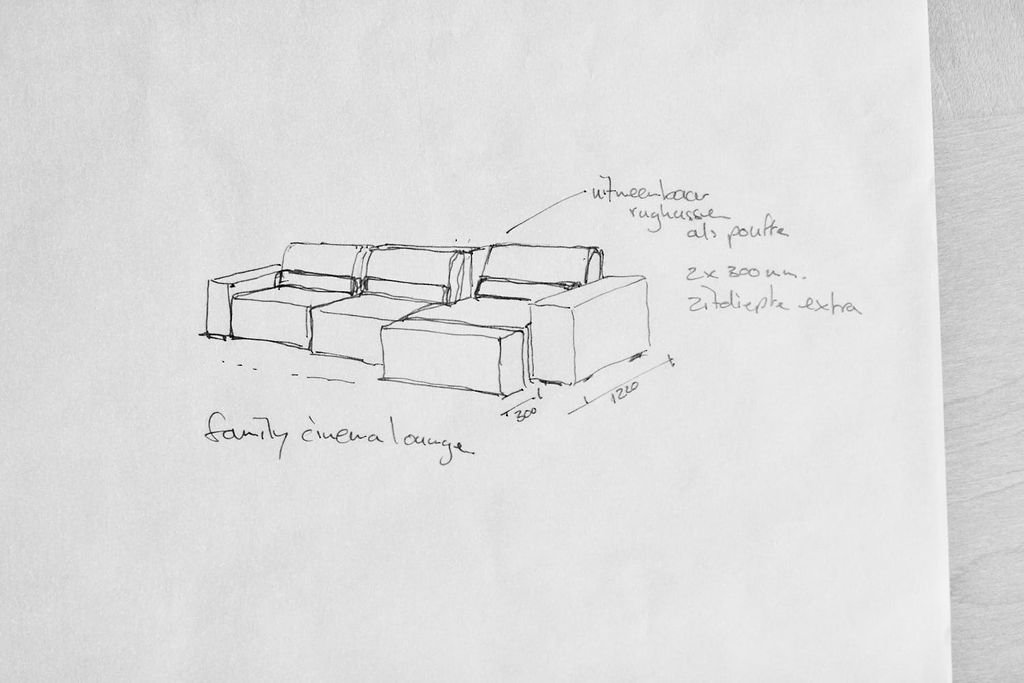 uitneembaar
rugkussen
als pouffe
2x 300 mm.
zitdiepte extra
300
1220
family cinema lounge